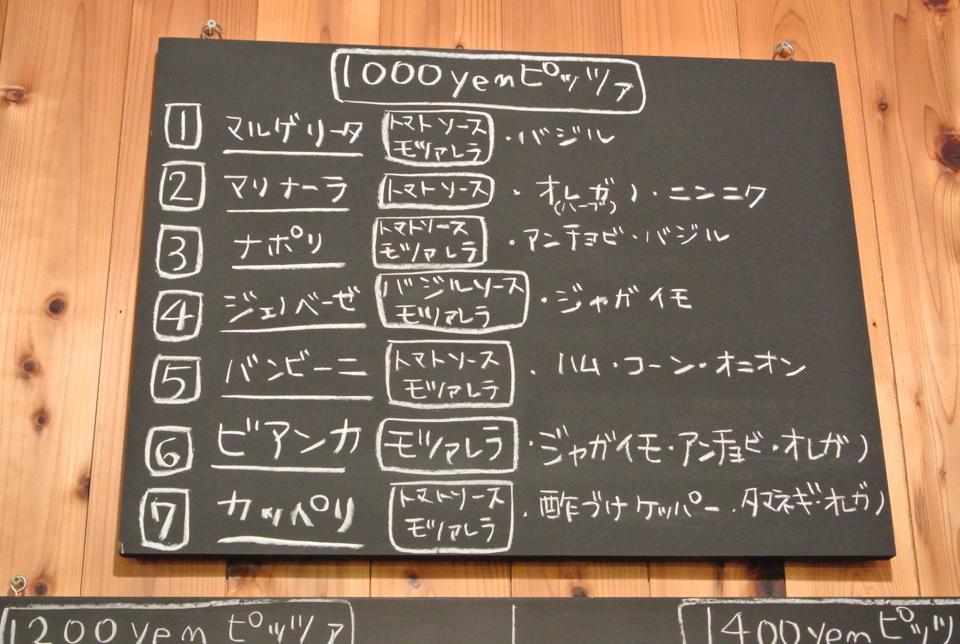 1000yenピッツァ
1 マルゲリータ トマトソース モツァレラ ・バジル
2 マリナーラ トマトソース ・オレガノ(ハーブ)・ニンニク
3 ナポリ トマトソース モツァレラ ・アンチョビ・バジル
4 ジェノベーゼ バジルソース モツァレラ ・ジャガイモ
5 バンビーニ トマトソース モツァレラ ・ハム・コーン・オニオン
6 ビアンカ モツァレラ ・ジャガイモ・アンチョビ・オレガノ
7 カッパリ トマトソース モツァレラ ・酢づけケッパー・タマネギ・オレガノ
1200yenピッツァ 1400yenピッツ